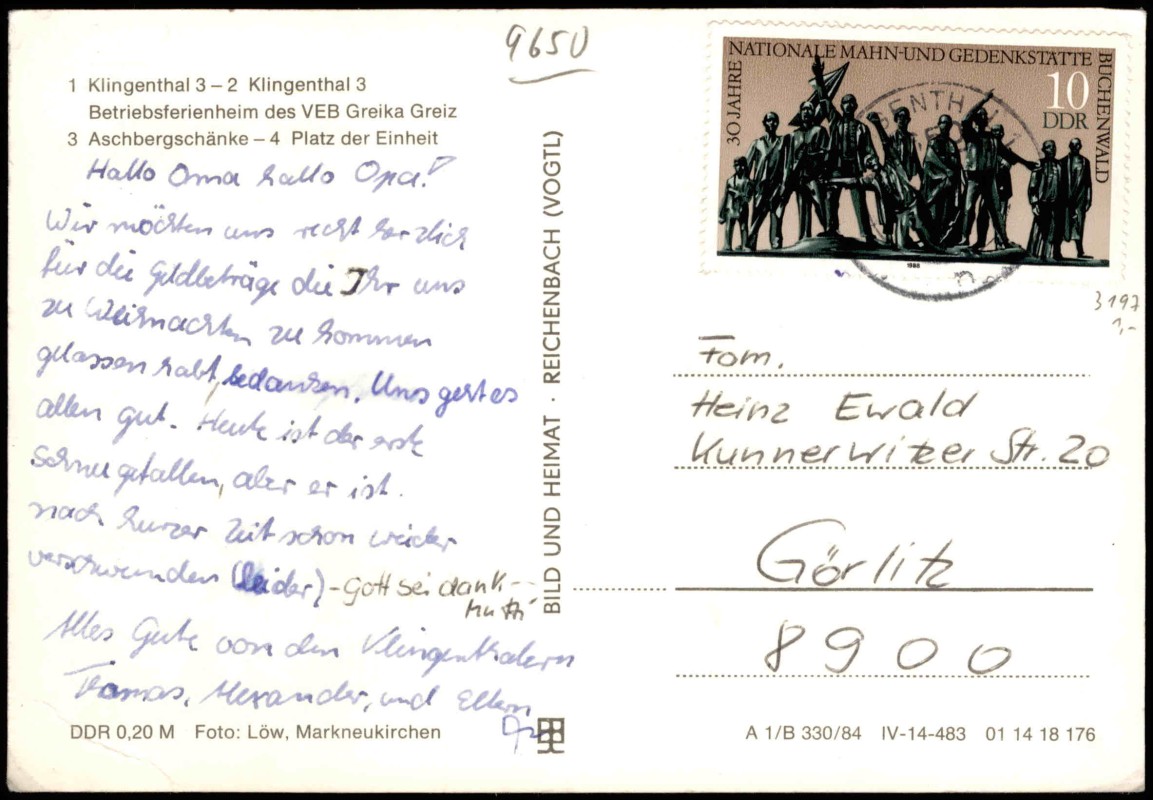 9650
1 Klingenthal 3 – 2 Klingenthal 3
Betriebsferienheim des VEB Greika Greiz
3 Aschbergschänke – 4 Platz der Einheit
Hallo Oma hallo Opa!
Wir möchten uns recht herzlich
für die Geldbeträge die Ihr uns
zu Weihnachten zu kommen
gelassen habt, bedanken. Uns geht es
allen gut. Heute ist der erste
Schnee gefallen, aber er ist
nach kurzer Zeit schon wieder
verschwunden (leider) - Gott sei dank -
Mutti
Alles Gute von den Klingenthalern
Thomas, Alexander, und Eltern
DDR 0,20 M Foto: Löw, Markneukirchen
BILD UND HEIMAT · REICHENBACH (VOGTL)
30 JAHRE NATIONALE MAHN-UND GEDENKSTÄTTE BUCHENWALD
10
DDR
1988
3197
1,-
Fam.
Heinz Ewald
Kunnerwitzer Str. 20
Görlitz
8900
A 1/B 330/84 IV-14-483 01 14 18 176